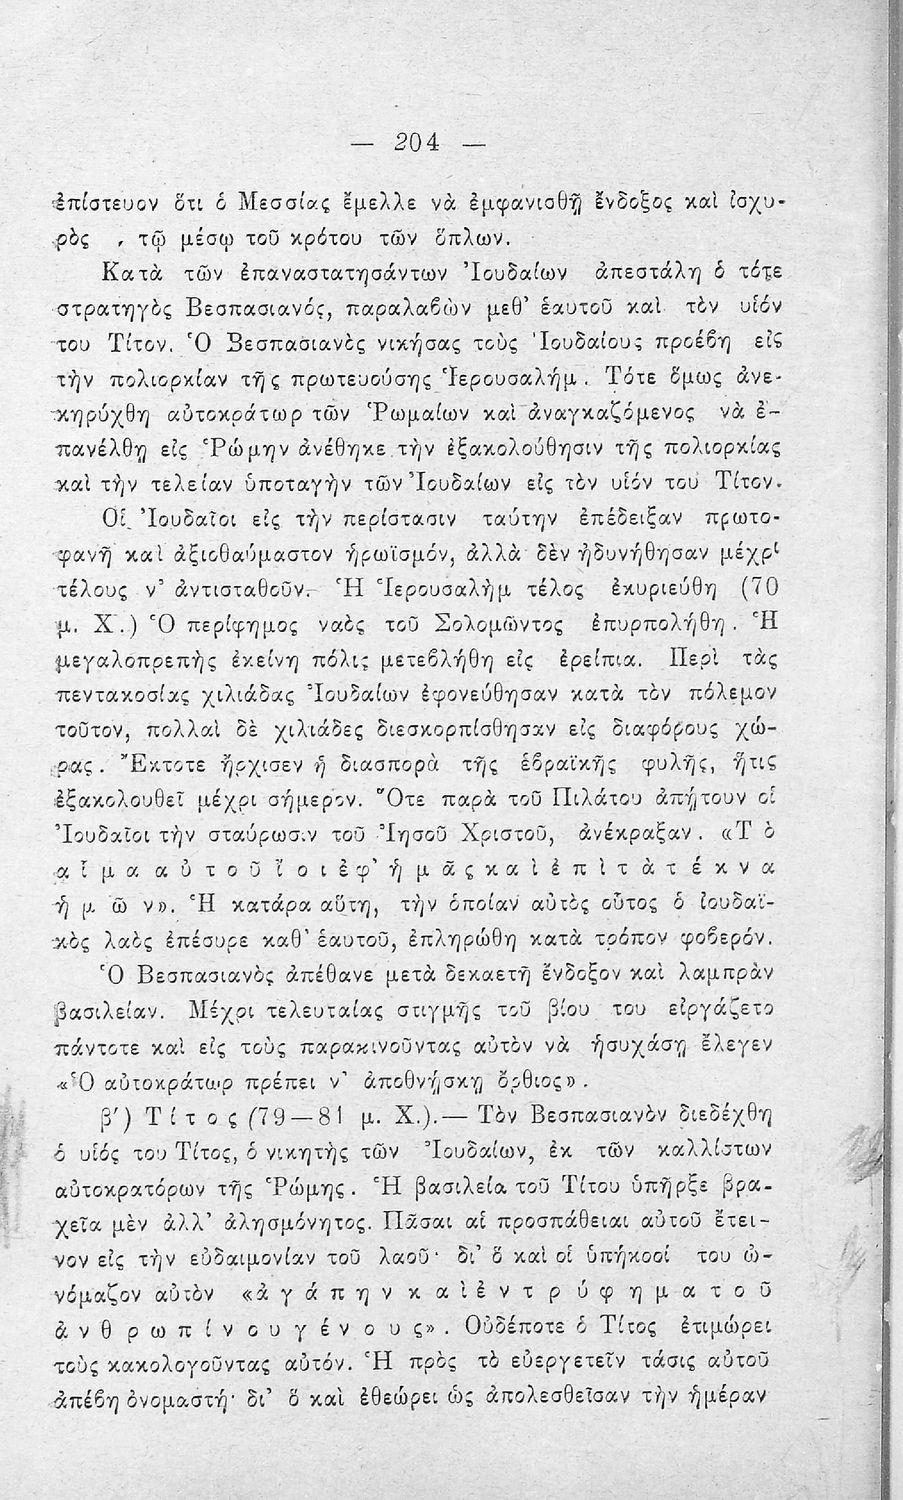 — 204 —
ἐπίστευον ὅτι ὁ Μεσσίας ἔμελλε νὰ ἐμφανισθῇ ἔνδοξος καὶ ἰσχυ-
ρὸς , τῷ μέσῳ τοῦ κρότου τῶν ὅπλων.
Κατὰ τῶν ἐπαναστατησάντων Ἰουδαίων ἀπεστάλη ὁ τότε
στρατηγὸς Βεσπασιανός, παραλαβὼν μεθ' ἑαυτοῦ καὶ τὸν υἱόν
του Τίτον. Ὁ Βεσπασιανὸς νικήσας τοὺς Ἰουδαίους προέβη εἰς
τὴν πολιορκίαν τῆς πρωτευούσης Ἱερουσαλήμ. Τότε ὅμως ἀνε-
κηρύχθη αὐτοκράτωρ τῶν Ῥωμαίων καὶ ἀναγκαζόμενος νὰ ἐ-
πανέλθῃ εἰς Ῥώμην ἀνέθηκε τὴν ἐξακολούθησιν τῆς πολιορκίας
καὶ τὴν τελείαν ὑποταγὴν τῶν Ἰουδαίων εἰς τὸν υἱόν του Τίτον.
Οἱ Ἰουδαῖοι εἰς τὴν περίστασιν ταύτην ἐπέδειξαν πρωτο-
φανῆ καὶ ἀξιοθαύμαστον ἡρωϊσμόν, ἀλλὰ δὲν ἠδυνήθησαν μέχρι
τέλους ν' ἀντισταθοῦν. Ἡ Ἱερουσαλὴμ τέλος ἐκυριεύθη (70
μ. Χ.) Ὁ περίφημος ναὸς τοῦ Σολομῶντος ἐπυρπολήθη. Ἡ
μεγαλοπρεπὴς ἐκείνη πόλις μετεβλήθη εἰς ἐρείπια. Περὶ τὰς
πεντακοσίας χιλιάδας Ἰουδαίων ἐφονεύθησαν κατὰ τὸν πόλεμον
τοῦτον, πολλαὶ δὲ χιλιάδες διεσκορπίσθησαν εἰς διαφόρους χώ-
ρας. Ἔκτοτε ἤρχισεν ἡ διασπορὰ τῆς ἑβραϊκῆς φυλῆς, ἥτις
ἐξακολουθεῖ μέχρι σήμερον. Ὅτε παρὰ τοῦ Πιλάτου ἀπῄτουν οἱ
Ἰουδαῖοι τὴν σταύρωσιν τοῦ Ἰησοῦ Χριστοῦ, ἀνέκραξαν. «Τ ὸ
α ἷ μ α α ὐ τ ο ῦ ἴ ο ι ἐ φ' ἡ μ ᾶ ς κ α ὶ ἐ π ὶ τ ὰ τ έ κ ν α
ἡ μ ῶ ν». Ἡ κατάρα αὕτη, τὴν ὁποίαν αὐτὸς οὗτος ὁ ἰουδαϊ-
κὸς λαὸς ἐπέσυρε καθ' ἑαυτοῦ, ἐπληρώθη κατὰ τρόπον φοβερόν.
Ὁ Βεσπασιανὸς ἀπέθανε μετὰ δεκαετῆ ἔνδοξον καὶ λαμπρὰν
βασιλείαν. Μέχρι τελευταίας στιγμῆς τοῦ βίου του εἰργάζετο
πάντοτε καὶ εἰς τοὺς παρακινοῦντας αὐτὸν νὰ ἡσυχάσῃ ἔλεγεν
«Ὁ αὐτοκράτωρ πρέπει ν' ἀποθνήσκῃ ὄρθιος».
β') Τ ί τ ο ς (79—81 μ. Χ.).— Τὸν Βεσπασιανὸν διεδέχθη
ὁ υἱός του Τίτος, ὁ νικητὴς τῶν Ἰουδαίων, ἐκ τῶν καλλίστων
αὐτοκρατόρων τῆς Ῥώμης. Ἡ βασιλεία τοῦ Τίτου ὑπῆρξε βρα-
χεῖα μὲν ἀλλ' ἀλησμόνητος. Πᾶσαι αἱ προσπάθειαι αὐτοῦ ἔτει-
νον εἰς τὴν εὐδαιμονίαν τοῦ λαοῦ· δι' ὃ καὶ οἱ ὑπήκοοί του ὠ-
νόμαζον αὐτὸν «ἀ γ ά π η ν κ α ὶ ἐ ν τ ρ ύ φ η μ α τ ο ῦ
ἀ ν θ ρ ω π ί ν ο υ γ έ ν ο υ ς». Οὐδέποτε ὁ Τίτος ἐτιμώρει
τοὺς κακολογοῦντας αὐτόν. Ἡ πρὸς τὸ εὐεργετεῖν τάσις αὐτοῦ
ἀπέβη ὀνομαστή· δι' ὃ καὶ ἐθεώρει ὡς ἀπολεσθεῖσαν τὴν ἡμέραν